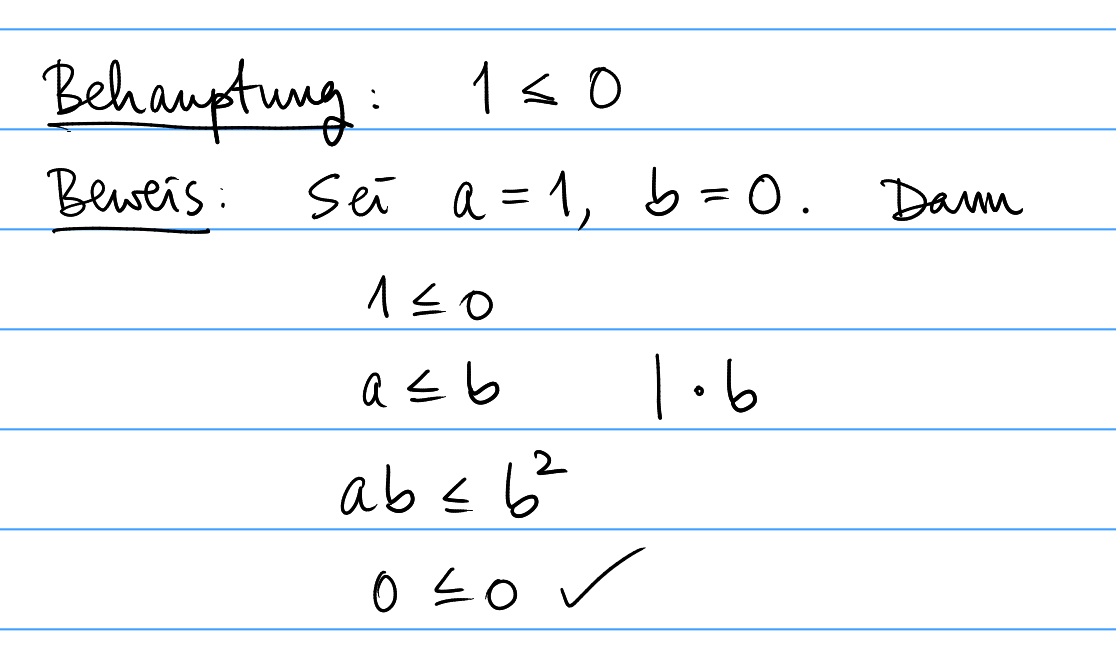 Behauptung: 1 ≤ 0
Beweis: Sei a = 1, b = 0. Dann
1 ≤ 0
a ≤ b | · b
ab ≤ b²
0 ≤ 0 ✓